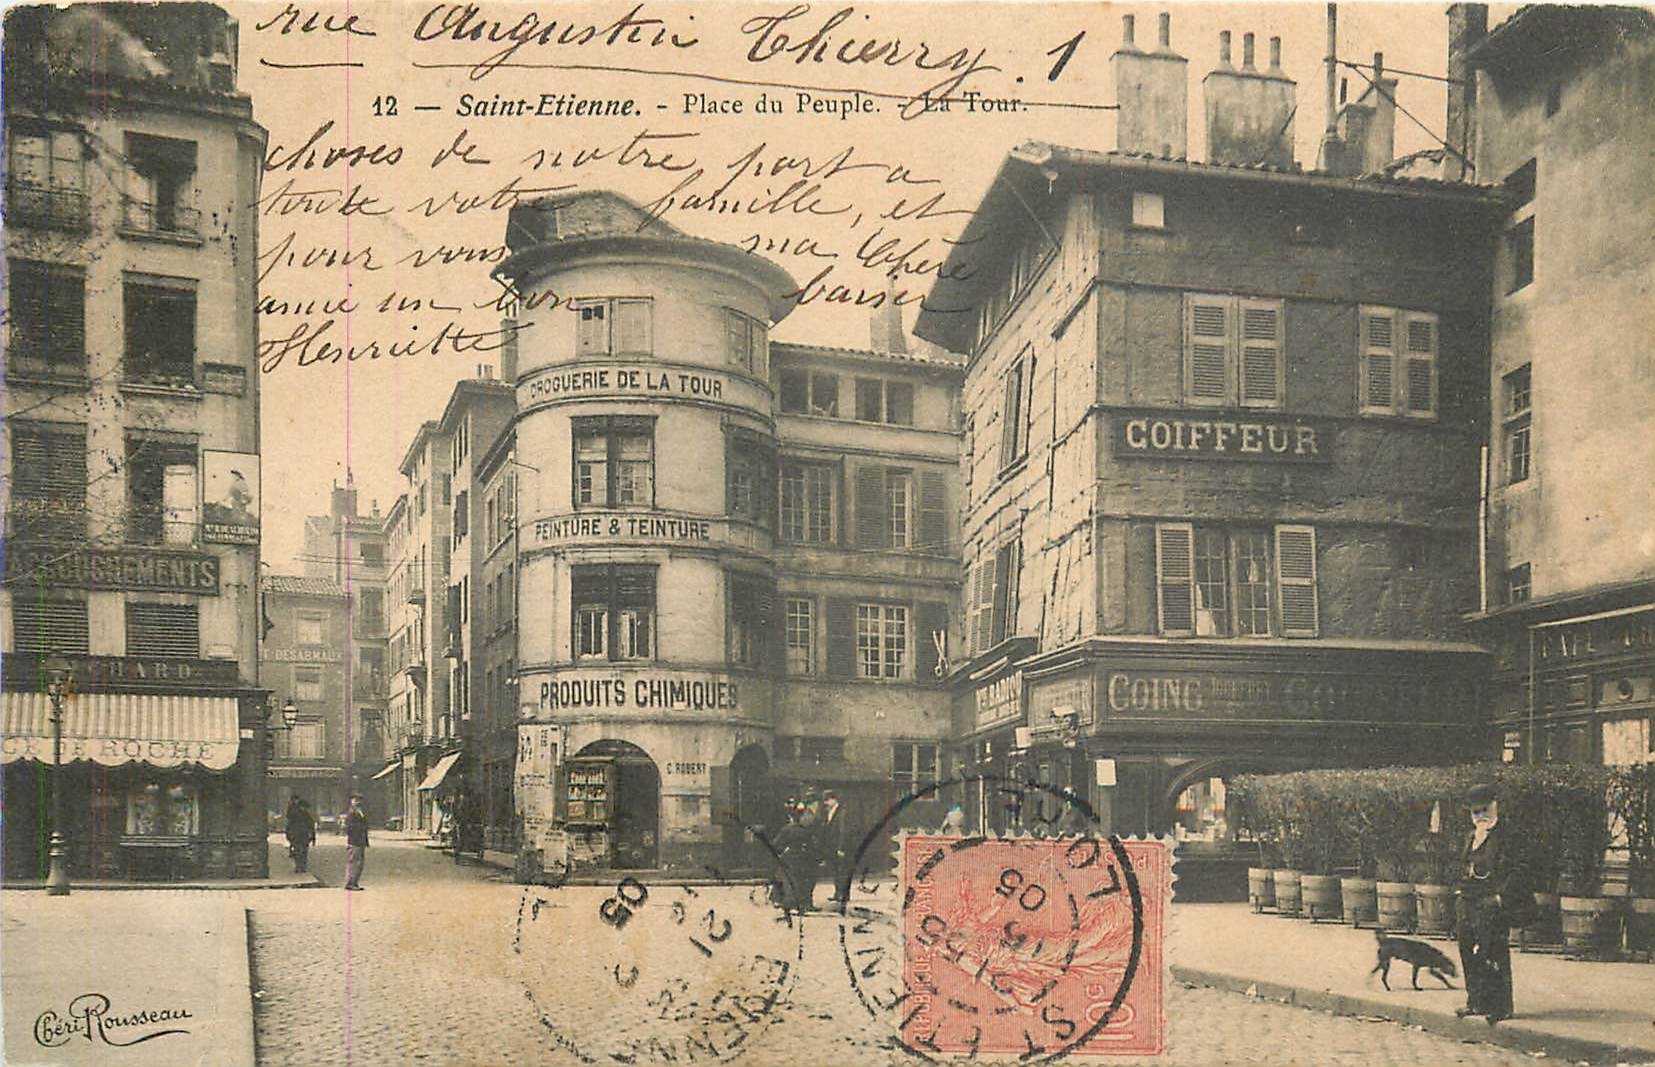 rue Augustin Thierry. 1
12 — Saint-Etienne. - Place du Peuple. - La Tour.
choses de notre part a
toute votre famille, et
pour vous ma Chère
amie un bon baiser
Henriette
DROGUERIE DE LA TOUR
COIFFEUR
PEINTURE & TEINTURE
PRODUITS CHIMIQUES
COING
DESARMAUX
CE DE ROCHE
C. ROBERT
CAFÉ
LOIRE
ST ETIENNE
05
21
05
10c
Chéri Rousseau